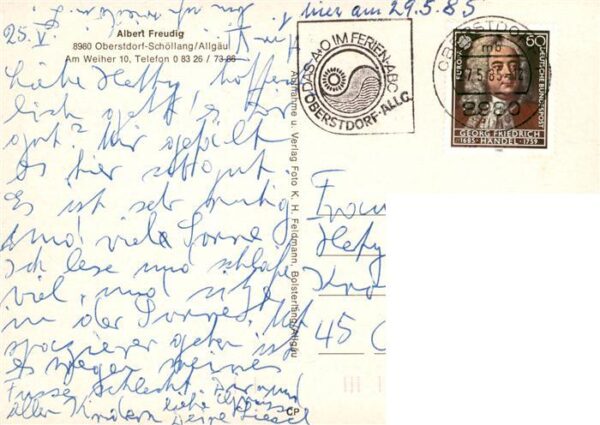 hier am 29.5.85
25.V.
Albert Freudig
8980 Oberstdorf-Schöllang/Allgäu
Am Weiher 10, Telefon 0 83 26 / 73 86
Liebe Hetty, hoffent
lich geht's Dir
gut. Mir gefällt
es hier sehr gut.
Es ist sehr ruhig
und viel Sonne
Ich lese und schlafe
viel, und sitze
in der Sonne. Mit
spazieren gehen ist
es wegen meines
Fusses schlecht. Dir und
allen Kindern liebe Grüsse
Deine Liesel
Aufnahme u. Verlag Foto K. H. Feldmann, Bolsterlang/Allgäu
CP
DAS A-O IM FERIEN-ABC
OBERSTDORF-ALLG.
OBERSTDORF
mb
8980
EUROPA
60
DEUTSCHE BUNDESPOST
GEORG FRIEDRICH
HÄNDEL
1685 1759
Frau
Hetty
45